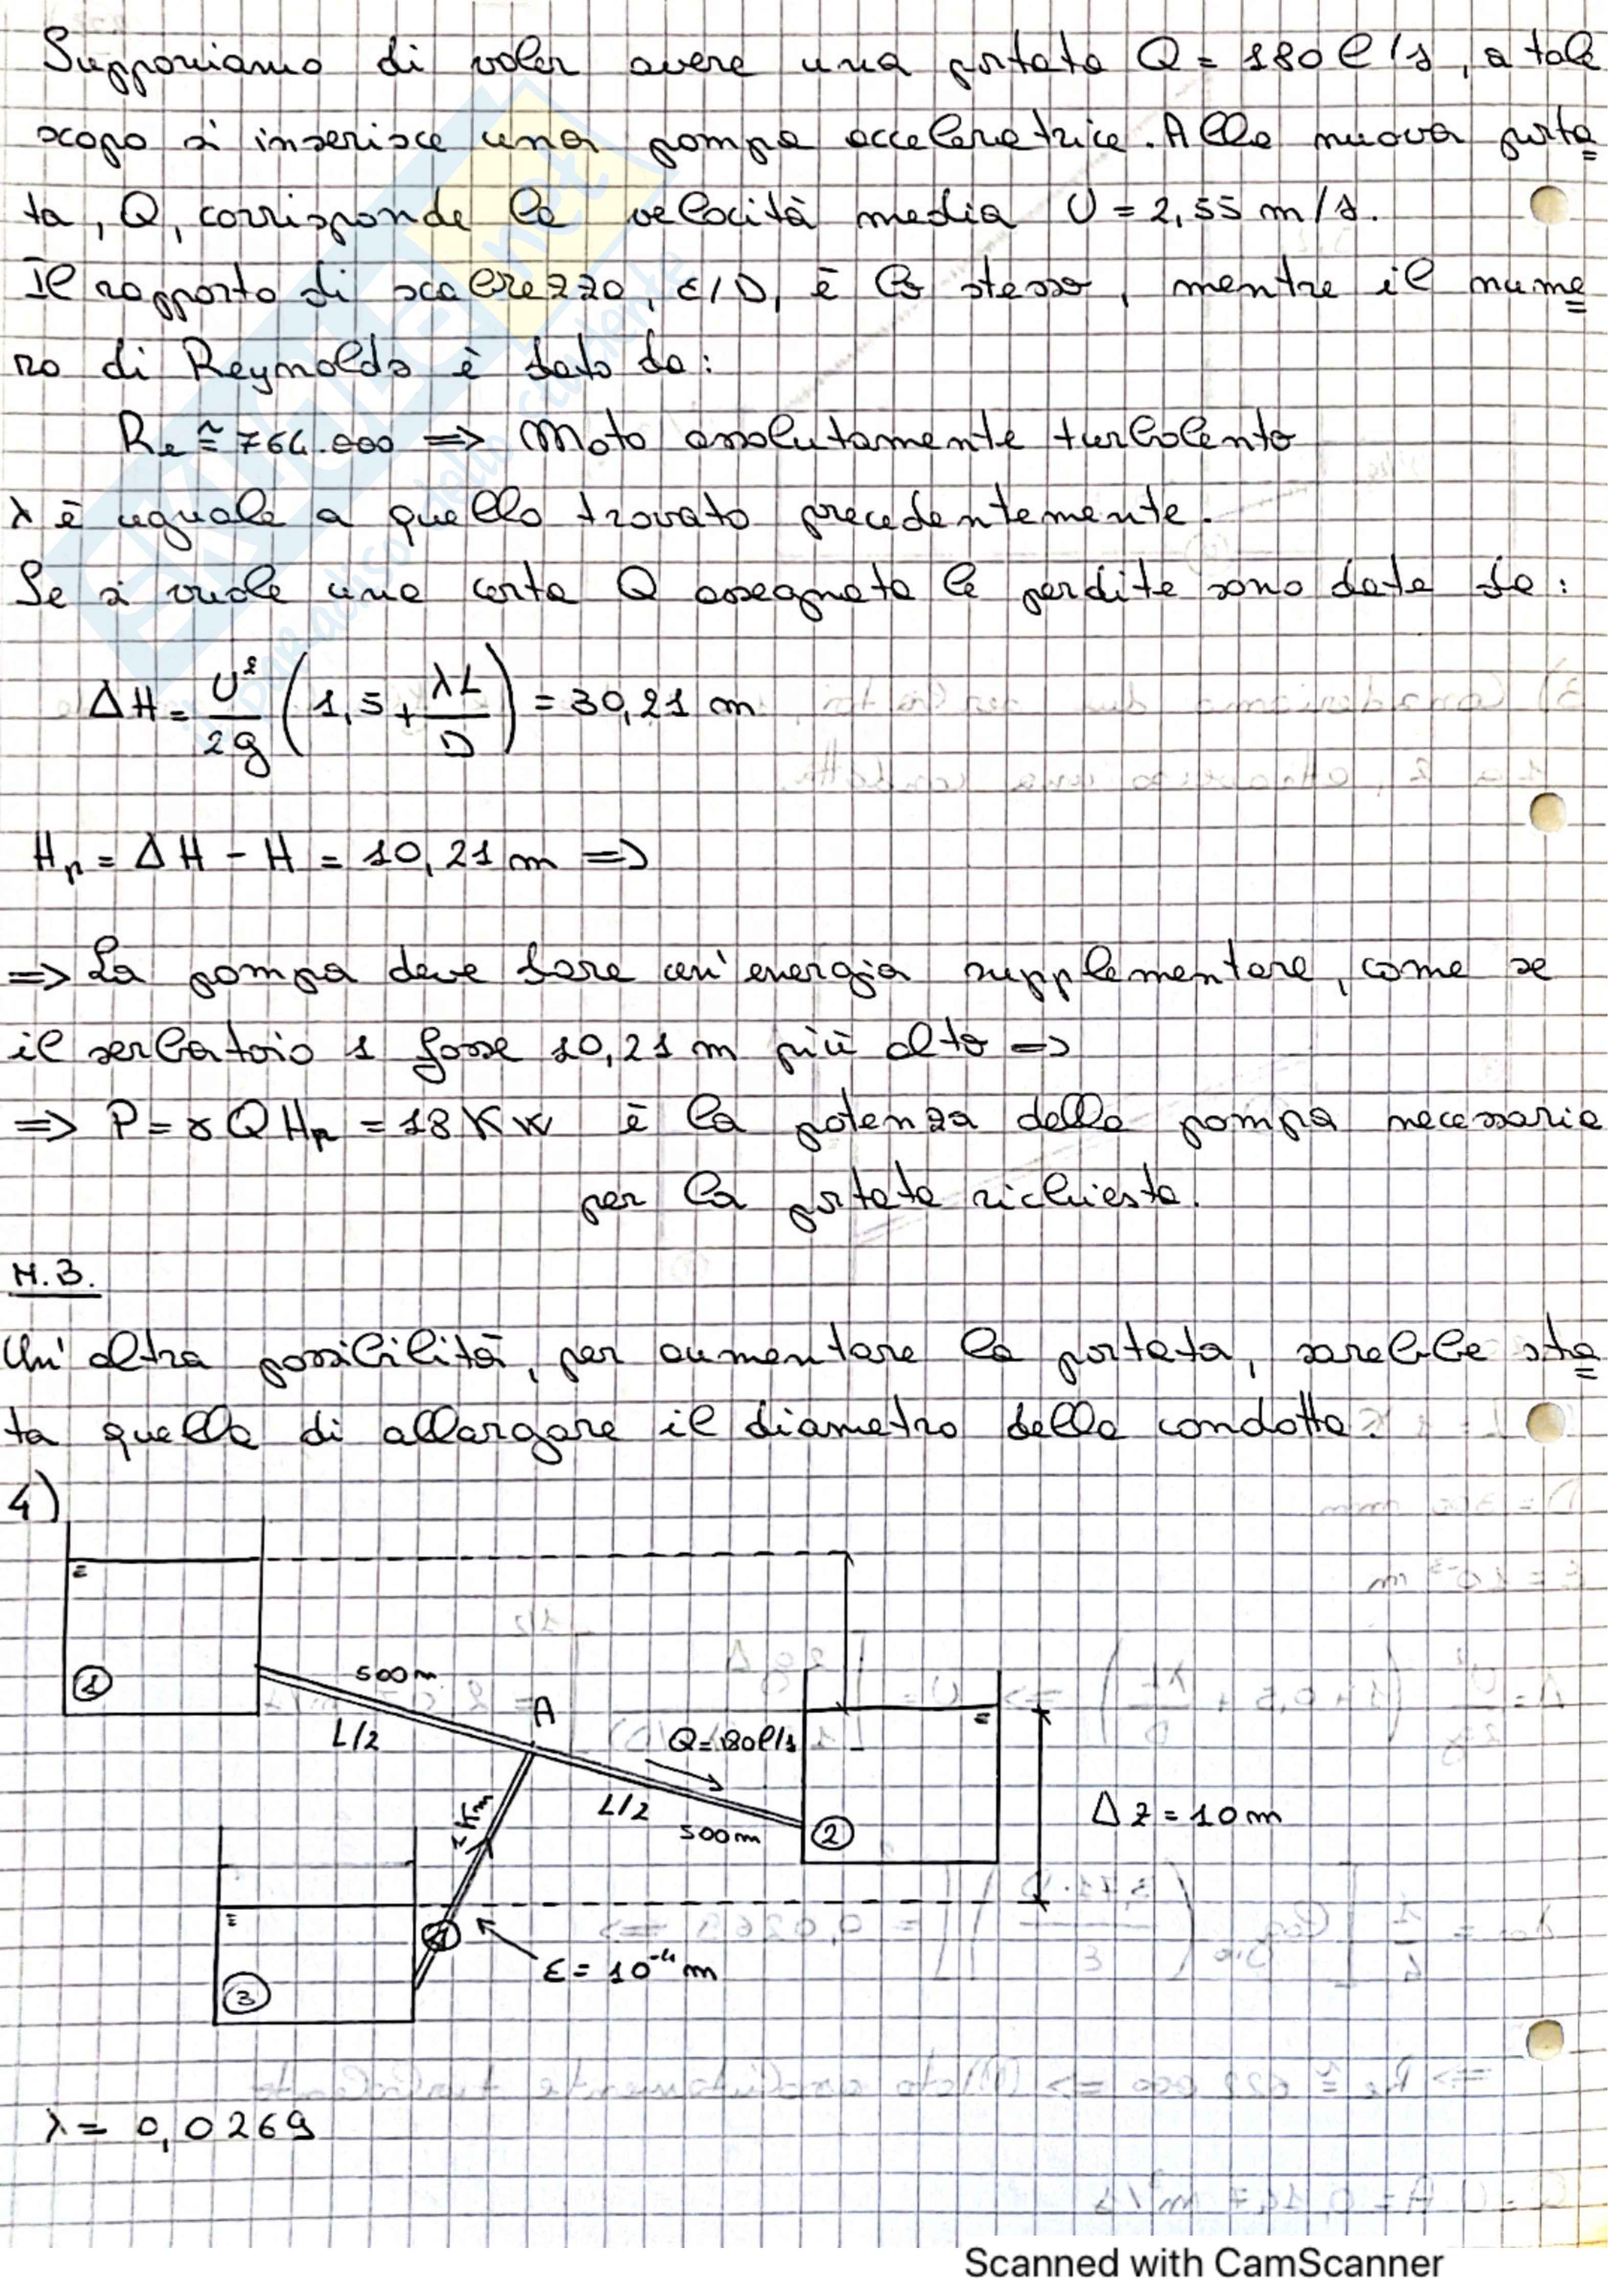 Supponiamo di voler avere una portata Q = 180 l/s, a tale
scopo si inserisce una pompa acceleratrice. Alla nuova porta
ta, Q, corrisponde la velocità media U = 2,55 m/s.
Il rapporto di scabrezza, ε/D, è lo stesso, mentre il nume
ro di Reynolds è dato da:
Re ≅ 764.000 => Moto assolutamente turbolento
λ è uguale a quello trovato precedentemente.
Se si vuole una certa Q assegnata le perdite sono date da:
ΔH = U²/2g (1,5 + λL/D) = 30,21 m
Hp = ΔH - H = 10,21 m =>
=> La pompa deve dare un'energia supplementare, come se
il serbatoio 1 fosse 10,21 m più alto =>
=> P = γQHp = 18 KW è la potenza della pompa necessaria
per la portata richiesta.
N.B.
Un'altra possibilità, per aumentare la portata, sarebbe sta
ta quella di allargare il diametro della condotta.
4)
500m
1
L/2
A
Q=180l/s
L/2
500m
2
ΔZ = 10 m
1 Km
ε = 10⁻⁴ m
3
λ = 0,0269
Scanned with CamScanner